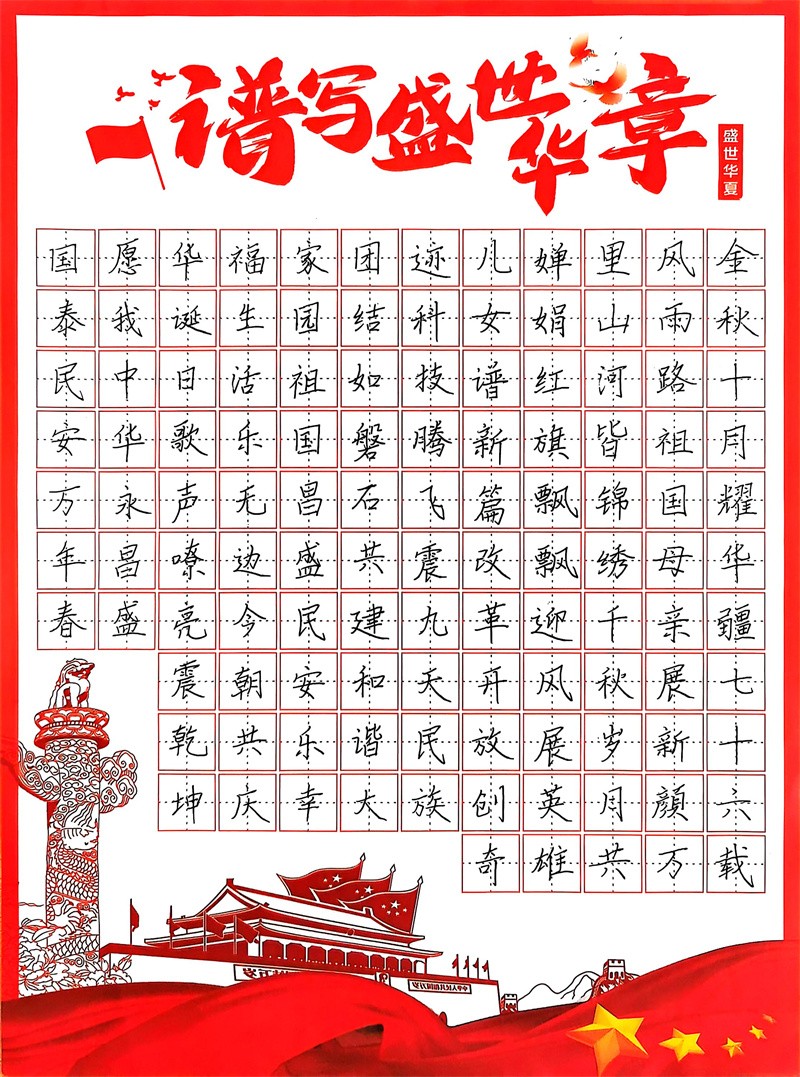 谱写盛世华章
盛世华夏
金秋十月耀华疆七十六载
风雨路祖国母亲展新顏万
里山河皆锦绣千秋岁月共
婵娟红旗飘飘迎风展英雄
儿女谱新篇改革开放创奇
迹科技腾飞震九天民族
团结如磐石共建和谐大
家园祖国昌盛民安乐幸
福生活乐无边今朝共庆
华诞日歌声嘹亮震乾坤
愿我中华永昌盛
国泰民安万年春